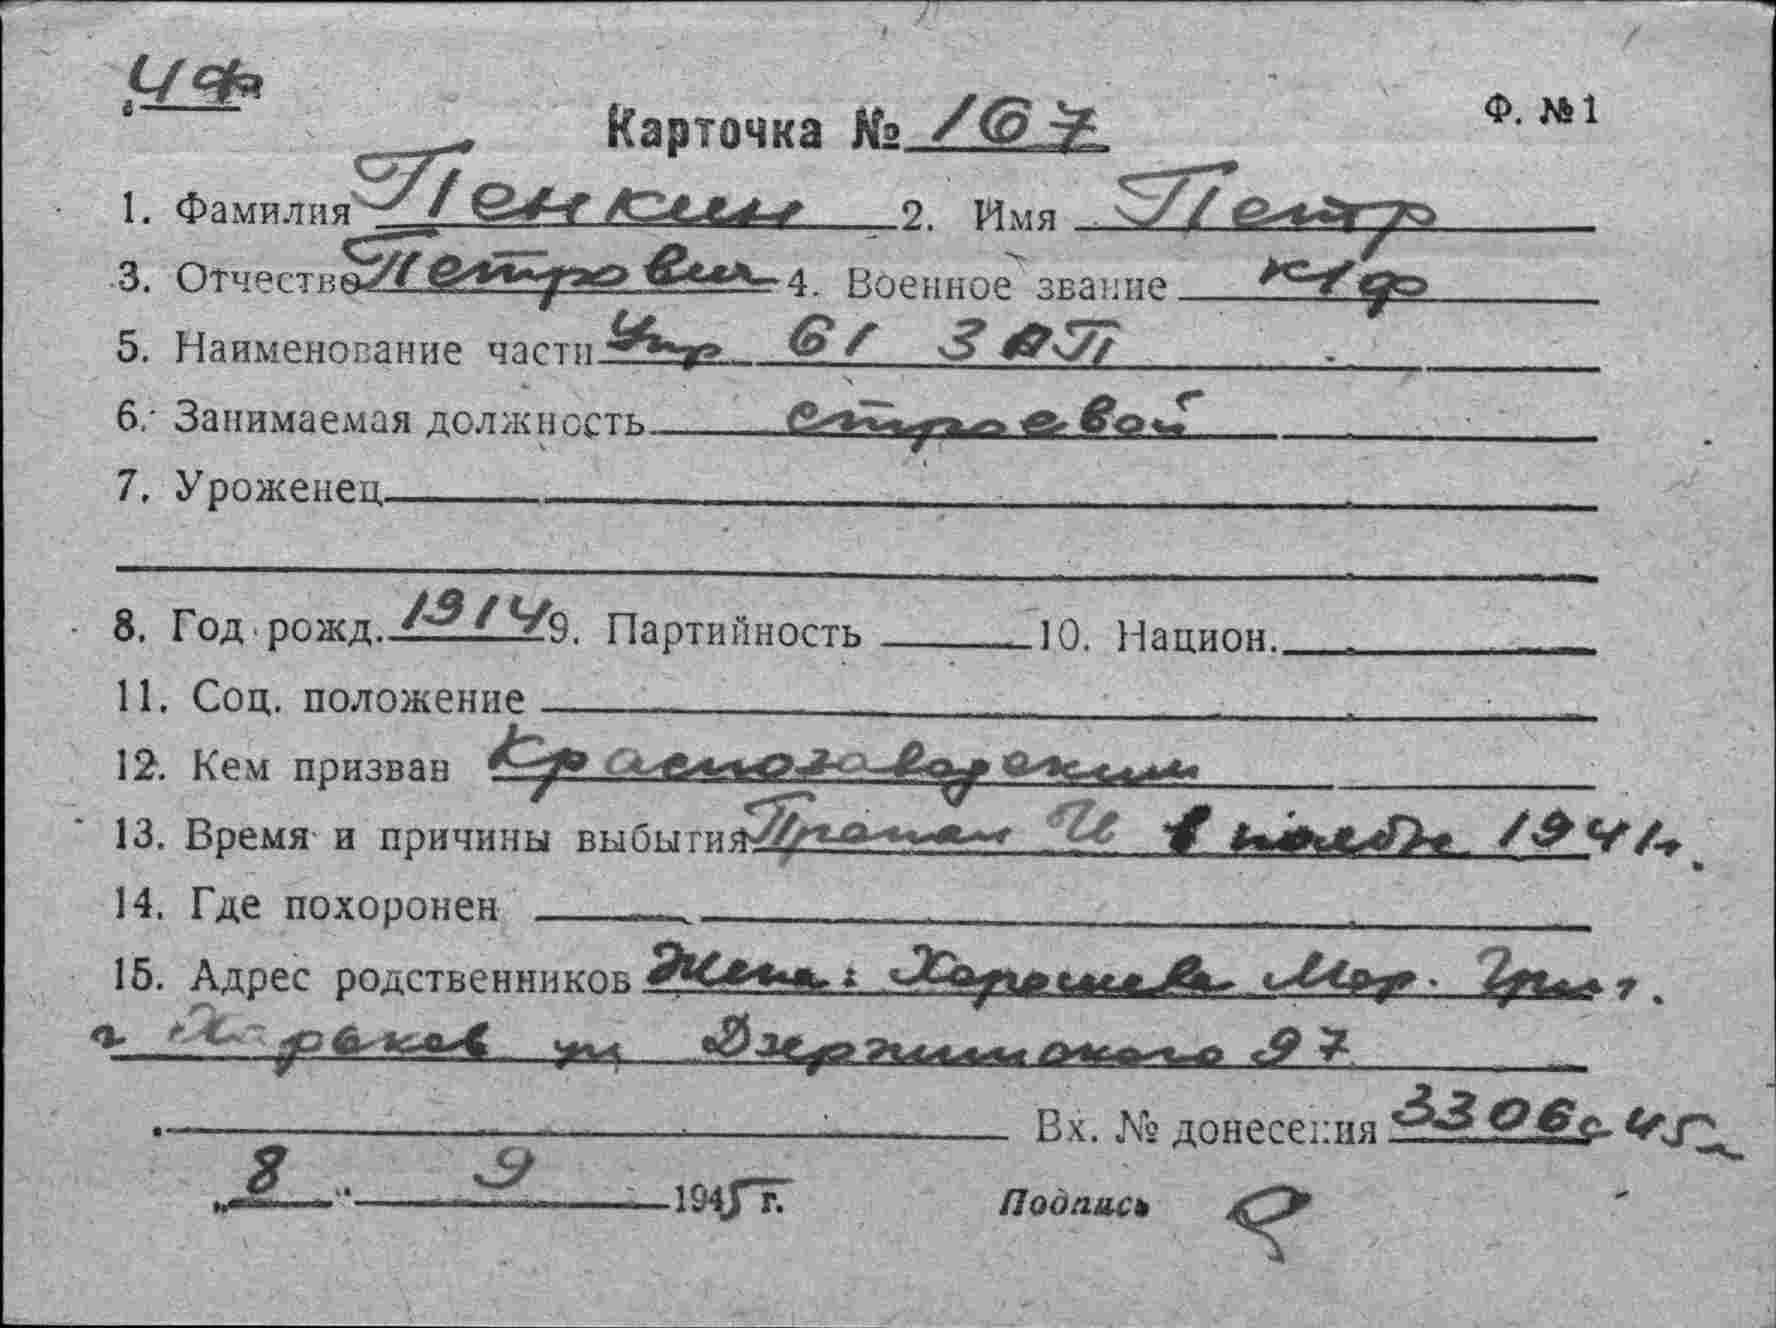 ЧФ
Ф. №1
Карточка № 167
1. Фамилия Пенкин 2. Имя Петр
3. Отчество Петрович 4. Военное звание к/ф
5. Наименование части Упр 61 ЗАП
6. Занимаемая должность строевой
7. Уроженец
8. Год рожд. 1914 9. Партийность 10. Национ.
11. Соц. положение
12. Кем призван Краснозаводским
13. Время и причины выбытия Пропал 1941
14. Где похоронен
15. Адрес родственников Жена: Хорошева Мар. Григ.
г Харьков ул Дзержинского 97
Вх. № донесения 3306с 45
„8" 9 1945 г. Подпись